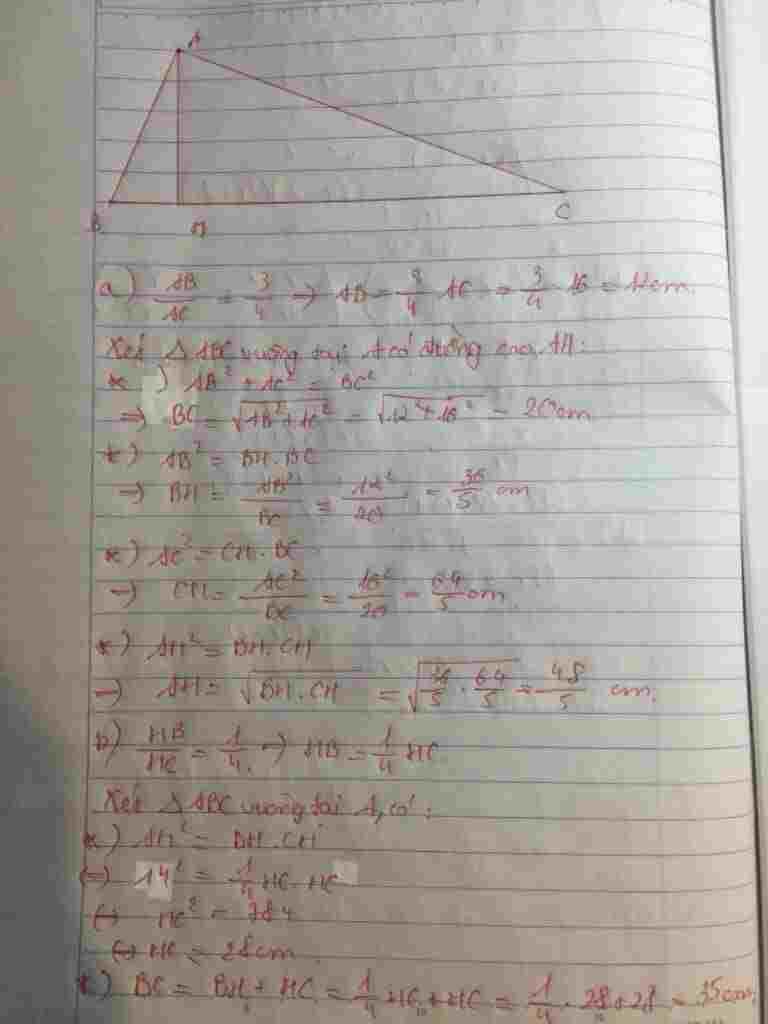 A
B H C
a) AB/AC = 3/4 => AB = 3/4 AC = 3/4 . 16 = 12cm.
Xét △ ABC vuông tại A có đường cao AH:
*) AB² + AC² = BC²
=> BC = √(AB² + AC²) = √(12² + 16²) = 20cm
*) AB² = BH . BC
=> BH = AB²/BC = 12²/20 = 36/5 cm
*) AC² = CH . BC
=> CH = AC²/BC = 16²/20 = 64/5 cm
*) AH² = BH . CH
=> AH = √(BH . CH) = √(36/5 . 64/5) = 48/5 cm.
b) HB/HC = 1/4 => HB = 1/4 HC
Xét △ ABC vuông tại A, có:
*) AH² = BH . CH
<=> 14² = 1/4 HC . HC
<=> HC² = 784
<=> HC = 28cm
*) BC = BH + HC = 1/4 HC + HC = 1/4 . 28 + 28 = 35cm